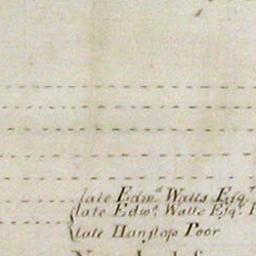 late Edwd. Watts Esqr.
late Edwd. Watts Esqr.
late Hanslops Poor